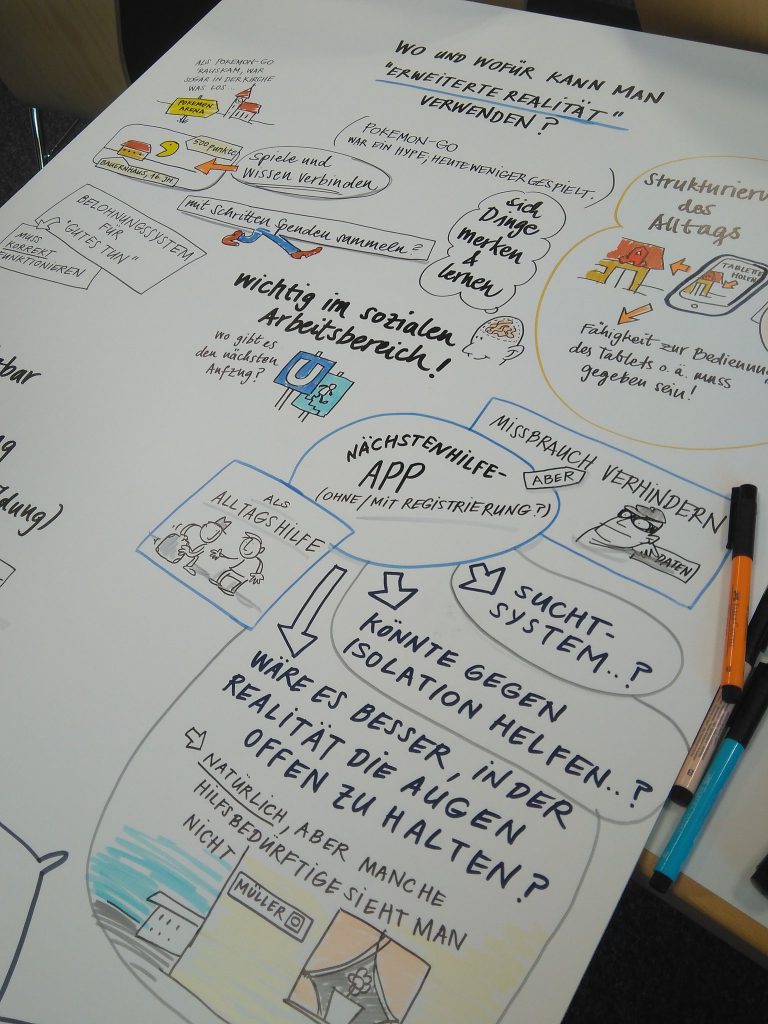 WO UND WOFÜR KANN MAN
"ERWEITERTE REALITÄT"
VERWENDEN?
ALS POKEMON-GO
'RAUSKAM, WAR
SOGAR IN DER KIRCHE
WAS LOS...
POKEMON
ARENA
(POKEMON-GO
WAR EIN HYPE, HEUTE WENIGER GESPIELT.)
500 PUNKTE
BAUERNHAUS, 16. JH
Spiele und
Wissen verbinden
mit Schritten Spenden sammeln?
BELOHNUNGSSYSTEM
FÜR
"GUTES TUN"
MUSS
KORREKT
FUNKTIONIEREN
sich
Dinge
merken
&
lernen
Strukturieru
des
Alltags
TABLETTE
HOLEN
Fähigkeit zur Bedienung
des Tablets o.ä. muss
gegeben sein!
wichtig im sozialen
Arbeitsbereich!
wo gibt es
den nächsten
Aufzug?
U
bar
g
dung)
NÄCHSTENHILFE-
APP
(OHNE/MIT REGISTRIERUNG?)
ABER
MISSBRAUCH VERHINDERN
DATEN
ALS
ALLTAGSHILFE
SUCHT-
SYSTEM..?
KÖNNTE GEGEN
ISOLATION HELFEN..?
WÄRE ES BESSER, IN DER
REALITÄT DIE AUGEN
OFFEN ZU HALTEN?
NATÜRLICH, ABER MANCHE
HILFSBEDÜRFTIGE SIEHT MAN
NICHT
MÜLLER